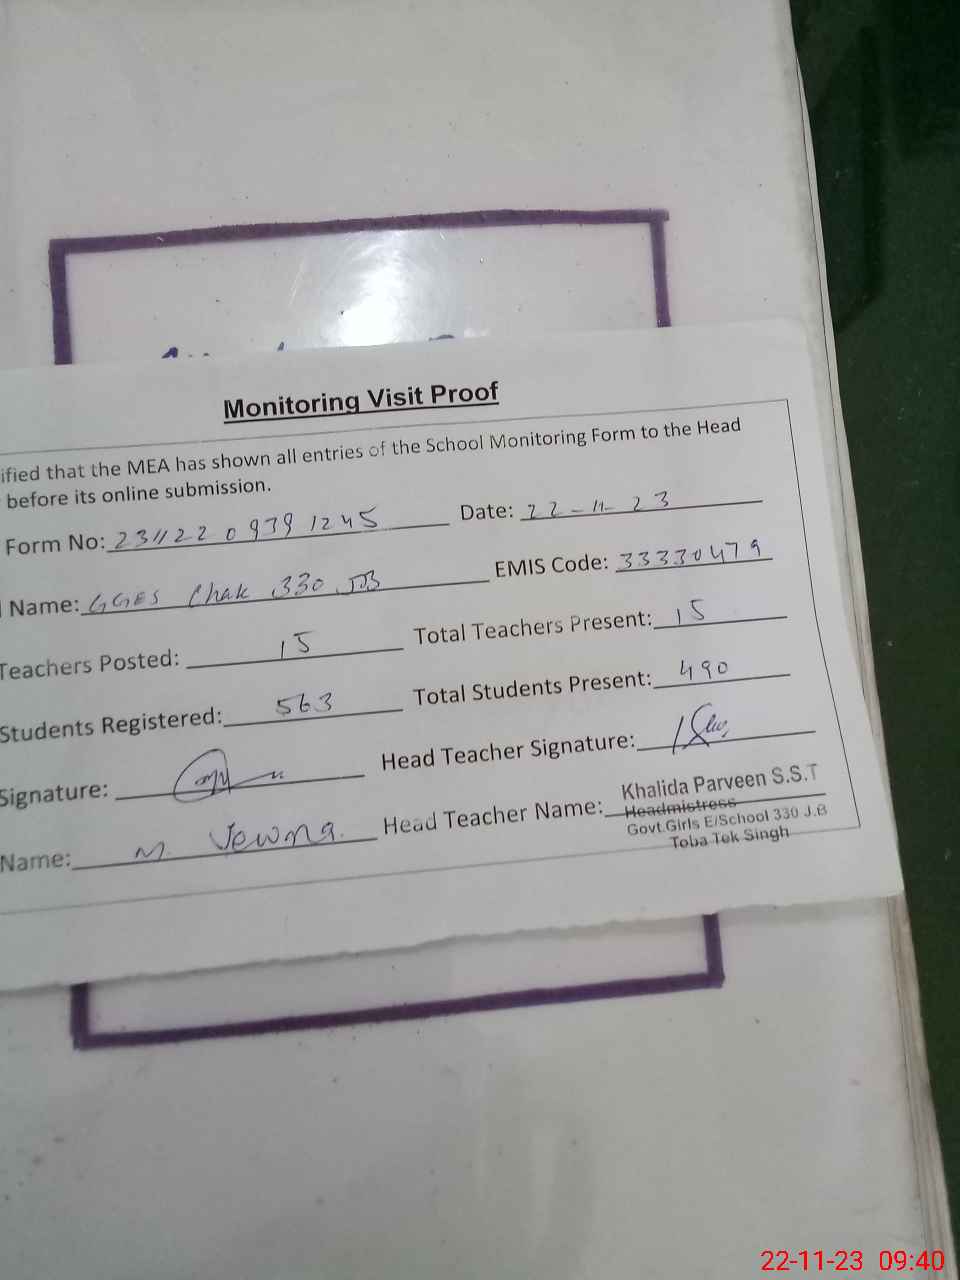 Monitoring Visit Proof
ified that the MEA has shown all entries of the School Monitoring Form to the Head
before its online submission.
Form No: 231122 0939 1245 Date: 22-11-23
Name: GGES Chak 330 JB EMIS Code: 33330479
Teachers Posted: 15 Total Teachers Present: 15
Students Registered: 563 Total Students Present: 490
Signature: Head Teacher Signature:
Name: M. Head Teacher Name: Khalida Parveen S.S.T
Headmistress
Govt.Girls E/School 330 J.B
Toba Tek Singh
22-11-23 09:40